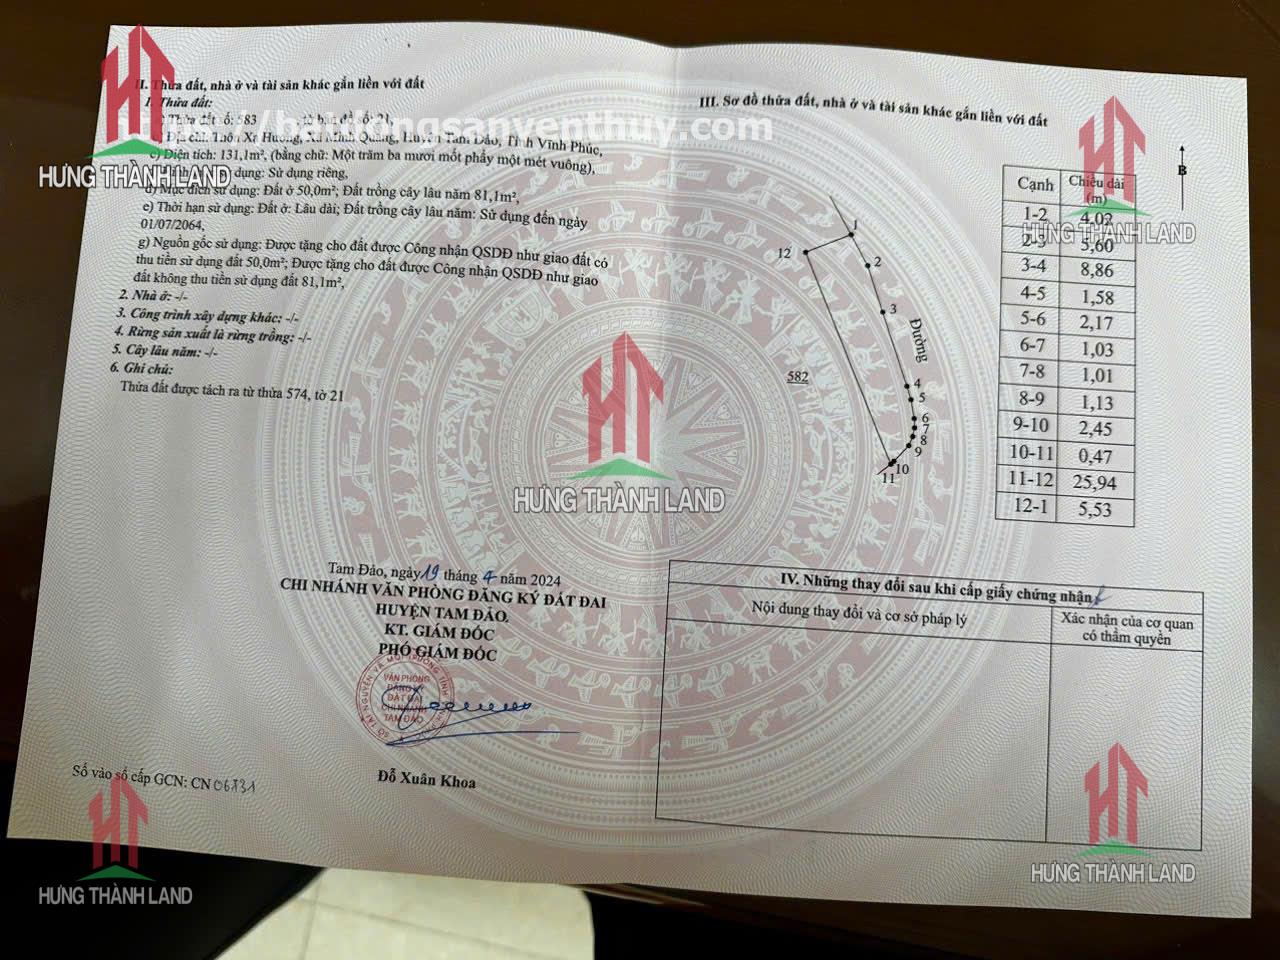 II. Thửa đất, nhà ở và tài sản khác gắn liền với đất
1. Thửa đất:
Thửa đất số: 583, tờ bản đồ số: 21,
Địa chỉ: Thôn Xạ Hương, Xã Minh Quang, Huyện Tam Đảo, Tỉnh Vĩnh Phúc,
c) Diện tích: 131,1m², (bằng chữ: Một trăm ba mươi mốt phẩy một mét vuông),
dụng: Sử dụng riêng,
d) Mục đích sử dụng: Đất ở 50,0m²; Đất trồng cây lâu năm 81,1m²,
e) Thời hạn sử dụng: Đất ở: Lâu dài; Đất trồng cây lâu năm: Sử dụng đến ngày
01/07/2064,
g) Nguồn gốc sử dụng: Được tặng cho đất được Công nhận QSDĐ như giao đất có
thu tiền sử dụng đất 50,0m²; Được tặng cho đất được Công nhận QSDĐ như giao
đất không thu tiền sử dụng đất 81,1m²,
2. Nhà ở: -/-
3. Công trình xây dựng khác: -/-
4. Rừng sản xuất là rừng trồng: -/-
5. Cây lâu năm: -/-
6. Ghi chú:
Thửa đất được tách ra từ thửa 574, tờ 21
Tam Đảo, ngày 19 tháng 4 năm 2024
CHI NHÁNH VĂN PHÒNG ĐĂNG KÝ ĐẤT ĐAI
HUYỆN TAM ĐẢO,
KT. GIÁM ĐỐC
PHÓ GIÁM ĐỐC
VĂN PHÒNG
ĐĂNG KÝ
ĐẤT ĐAI
CHI NHÁNH
TAM ĐẢO
Đỗ Xuân Khoa
Số vào sổ cấp GCN: CN 06731
III. Sơ đồ thửa đất, nhà ở và tài sản khác gắn liền với đất
B
Cạnh Chiều dài (m)
1-2 4,02
2-3 5,60
3-4 8,86
4-5 1,58
5-6 2,17
6-7 1,03
7-8 1,01
8-9 1,13
9-10 2,45
10-11 0,47
11-12 25,94
12-1 5,53
1
12
2
3
Đường
582
4
5
6
7
8
9
10
11
IV. Những thay đổi sau khi cấp giấy chứng nhận
Nội dung thay đổi và cơ sở pháp lý
Xác nhận của cơ quan
có thẩm quyền
HƯNG THÀNH LAND
HƯNG THÀNH LAND
HƯNG THÀNH LAND
HƯNG THÀNH LAND
HƯNG THÀNH LAND